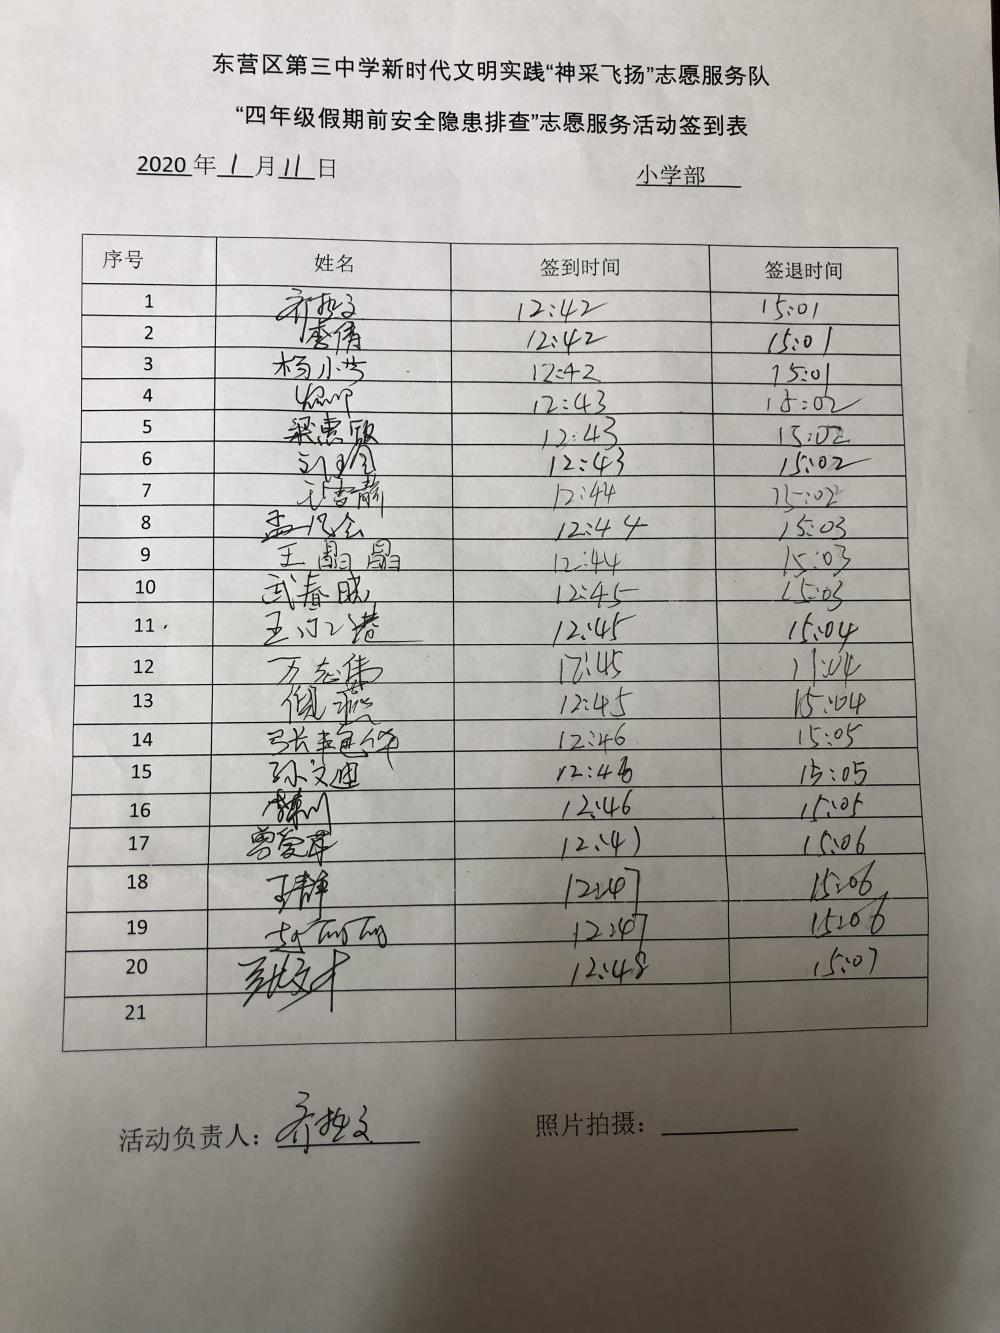 东营区第三中学新时代文明实践“神采飞扬”志愿服务队
“四年级假期前安全隐患排查”志愿服务活动签到表
2020 年 1 月 11 日 小学部
序号 姓名 签到时间 签退时间
1 12:42 15:01
2 12:42 15:01
3 12:42 15:01
4 12:43 15:02
5 梁惠欣 12:43 15:02
6 12:43 15:02
7 12:44 15:02
8 12:44 15:03
9 王晶晶 12:44 15:03
10 武春晓 12:45 15:03
11 12:45 15:04
12 万志伟 12:45
13 倪燕 12:45 15:04
14 12:46 15:05
15 孙文迪 12:46 15:05
16 12:46 15:05
17 曾爱萍 12:47 15:06
18 王静 12:47 15:06
19 赵丽丽 12:47 15:06
20 12:48 15:07
21
活动负责人： 照片拍摄：